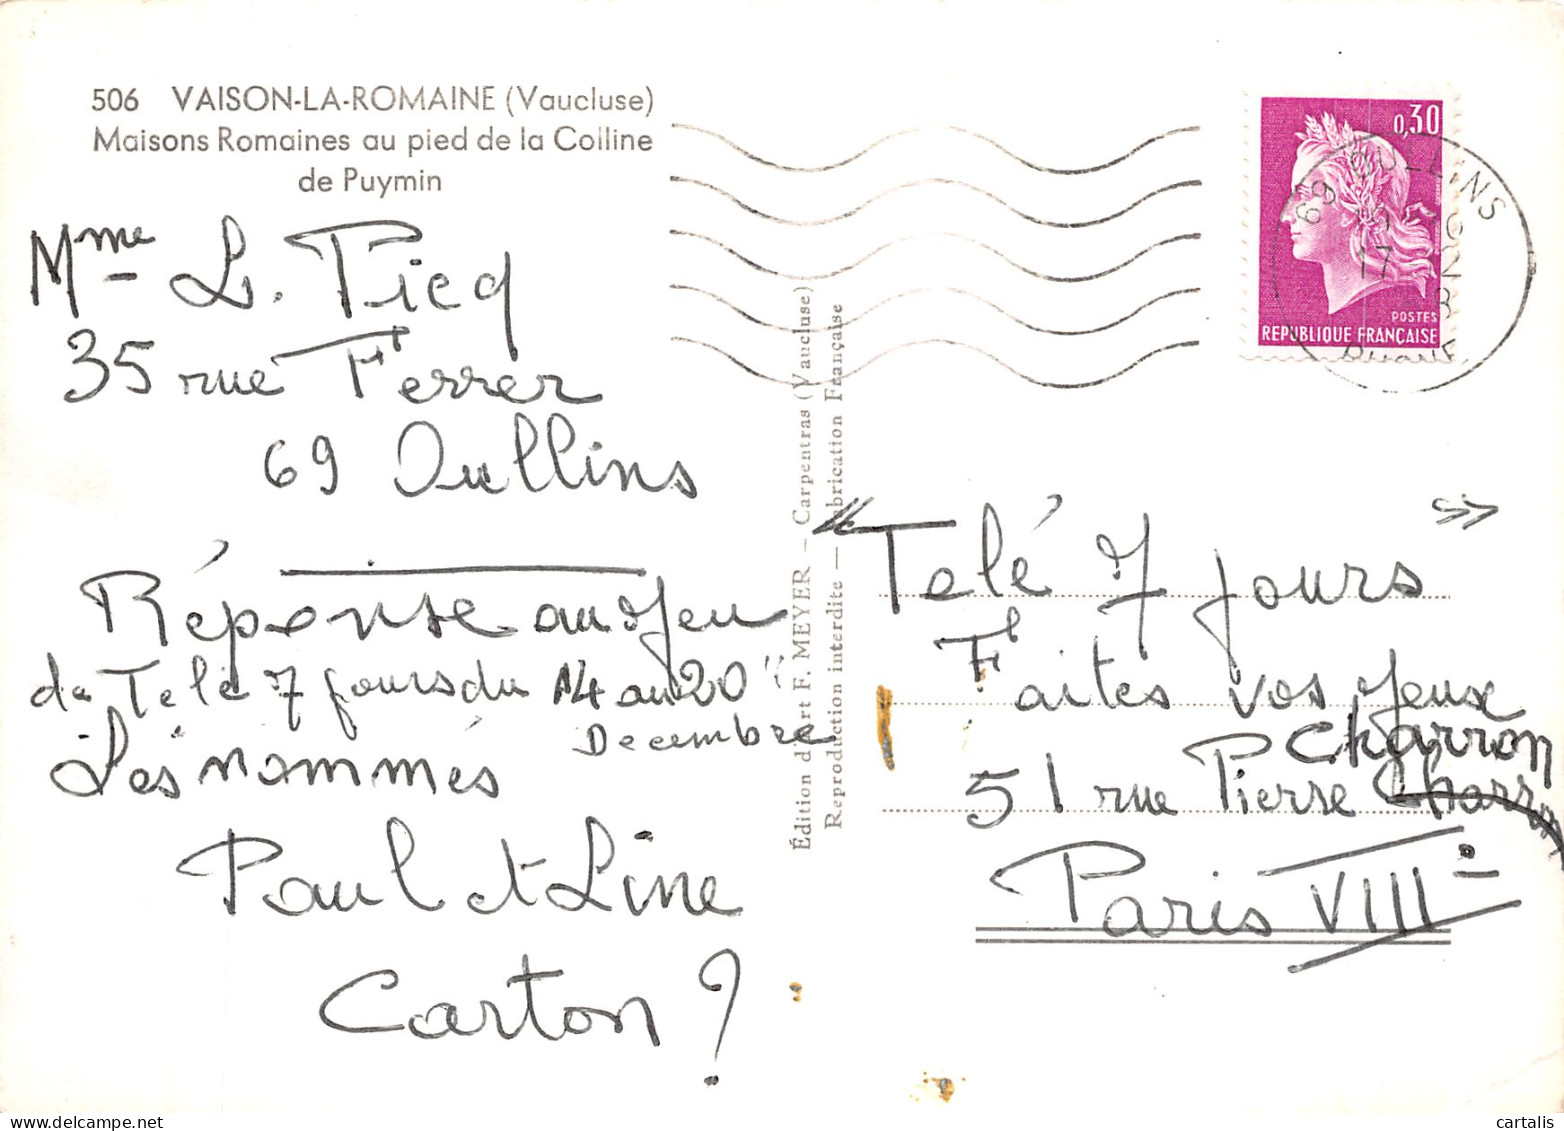 506 VAISON-LA-ROMAINE (Vaucluse)
Maisons Romaines au pied de la Colline
de Puymin
Mme L. Picq
35 rue Ferrer
69 Oullins
Réponse au Jeu
de Télé 7 jours du 14 au 20
Decembre
Les nommés
Paul et Line
Carton ?
Édition d'art F. MEYER — Carpentras (Vaucluse)
Reproduction interdite — Fabrication Française
0,30
POSTES
REPUBLIQUE FRANÇAISE
69 OULLINS
17
RHONE
« Telé 7 jours »
Faites vos Jeux
Charron
51 rue Pierre Charron
Paris VIII
cartalis